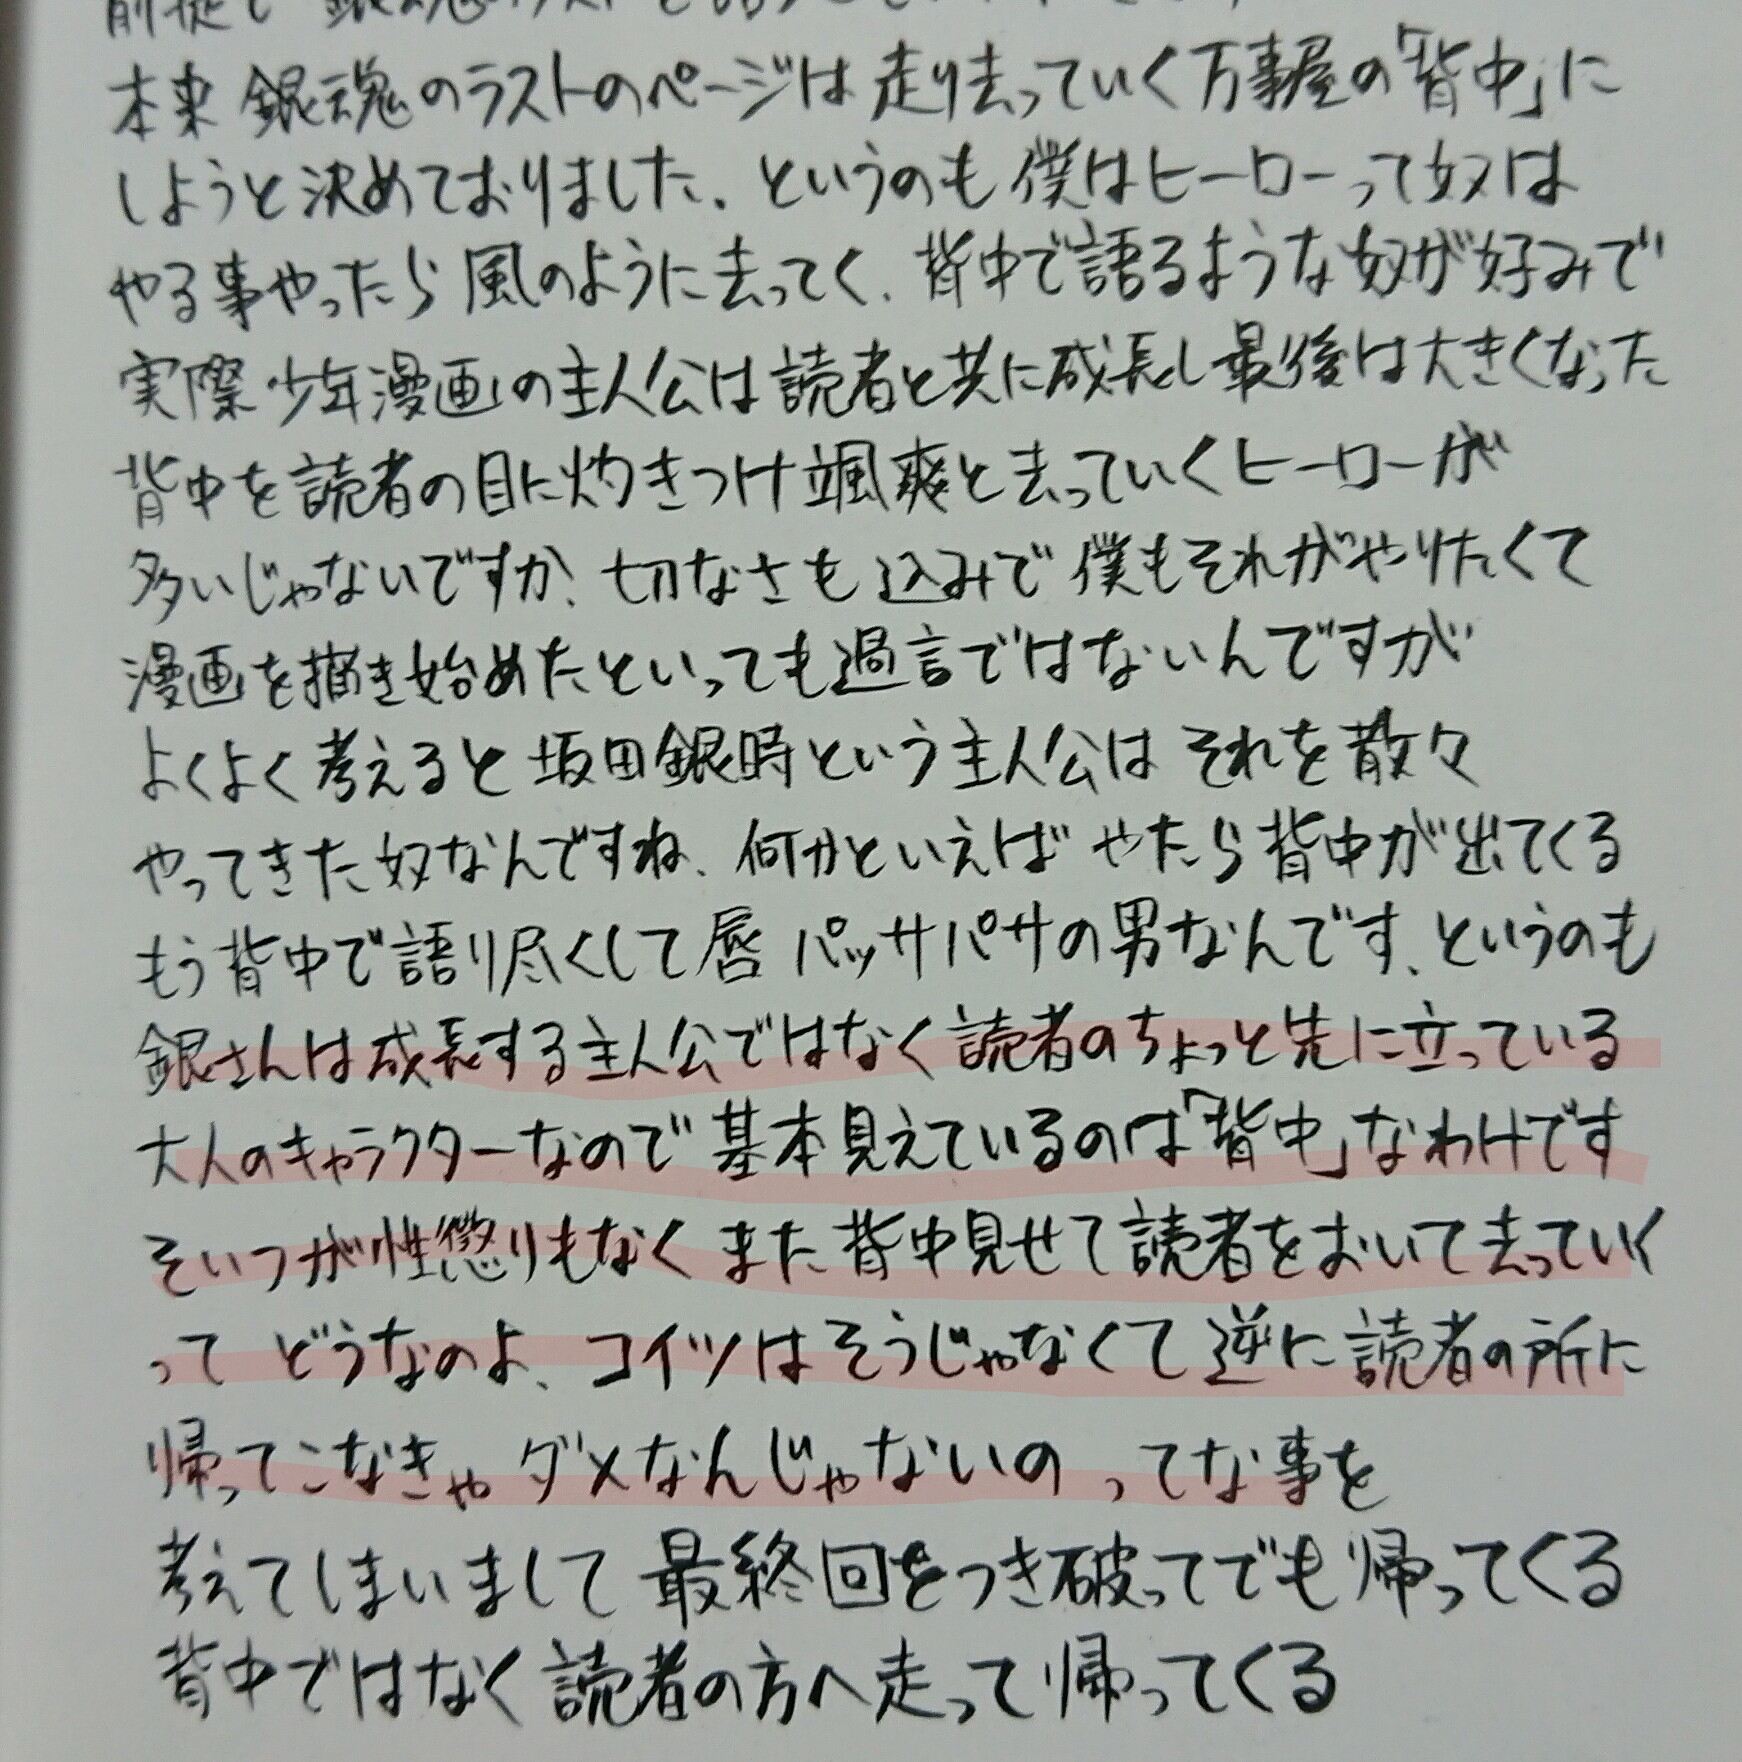 本来 銀魂のラストのページは走り去っていく万事屋の「背中」に
しようと決めておりました. というのも僕はヒーローって奴は
やる事やったら風のように去ってく、背中で語るような奴が好みで
実際少年漫画の主人公は読者と共に成長し最後は大きくなった
背中を読者の目に灼きつけ颯爽と去っていくヒーローが
多いじゃないですか、切なさも込みで僕もそれがやりたくて
漫画を描き始めたといっても過言ではないんですが
よくよく考えると坂田銀時という主人公はそれを散々
やってきた奴なんですね、何かといえばやたら背中が出てくる
もう背中で語り尽くして唇パッサパサの男なんです、というのも
銀さんは成長する主人公ではなく読者のちょっと先に立っている
大人のキャラクターなので基本見えているのは「背中」なわけです
そいつが性懲りもなくまた背中見せて読者をおいて去っていく
って どうなのよ、コイツはそうじゃなくて逆に読者の所に
帰ってこなきゃダメなんじゃないの ってな事を
考えてしまいまして 最終回をつき破ってでも帰ってくる
背中ではなく読者の方へ走って帰ってくる